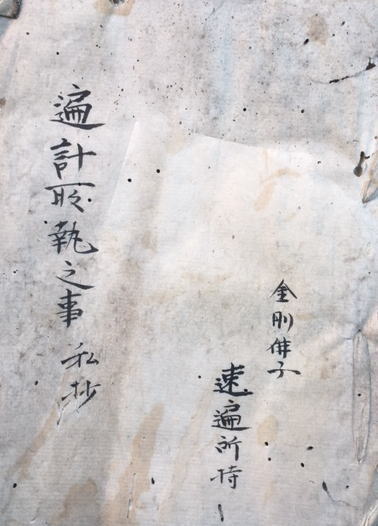 金剛佛子
速遍所持
遍計所執之事 私抄